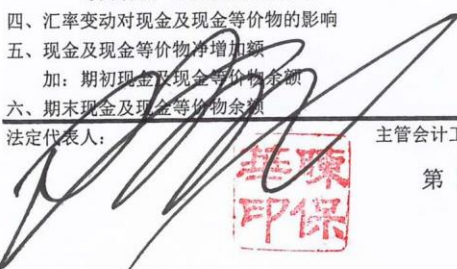 四、汇率变动对现金及现金等价物的影响
五、现金及现金等价物净增加额
加：期初现金及现金等价物余额
六、期末现金及现金等价物余额
法定代表人：
主管会计工
第
陳保華印